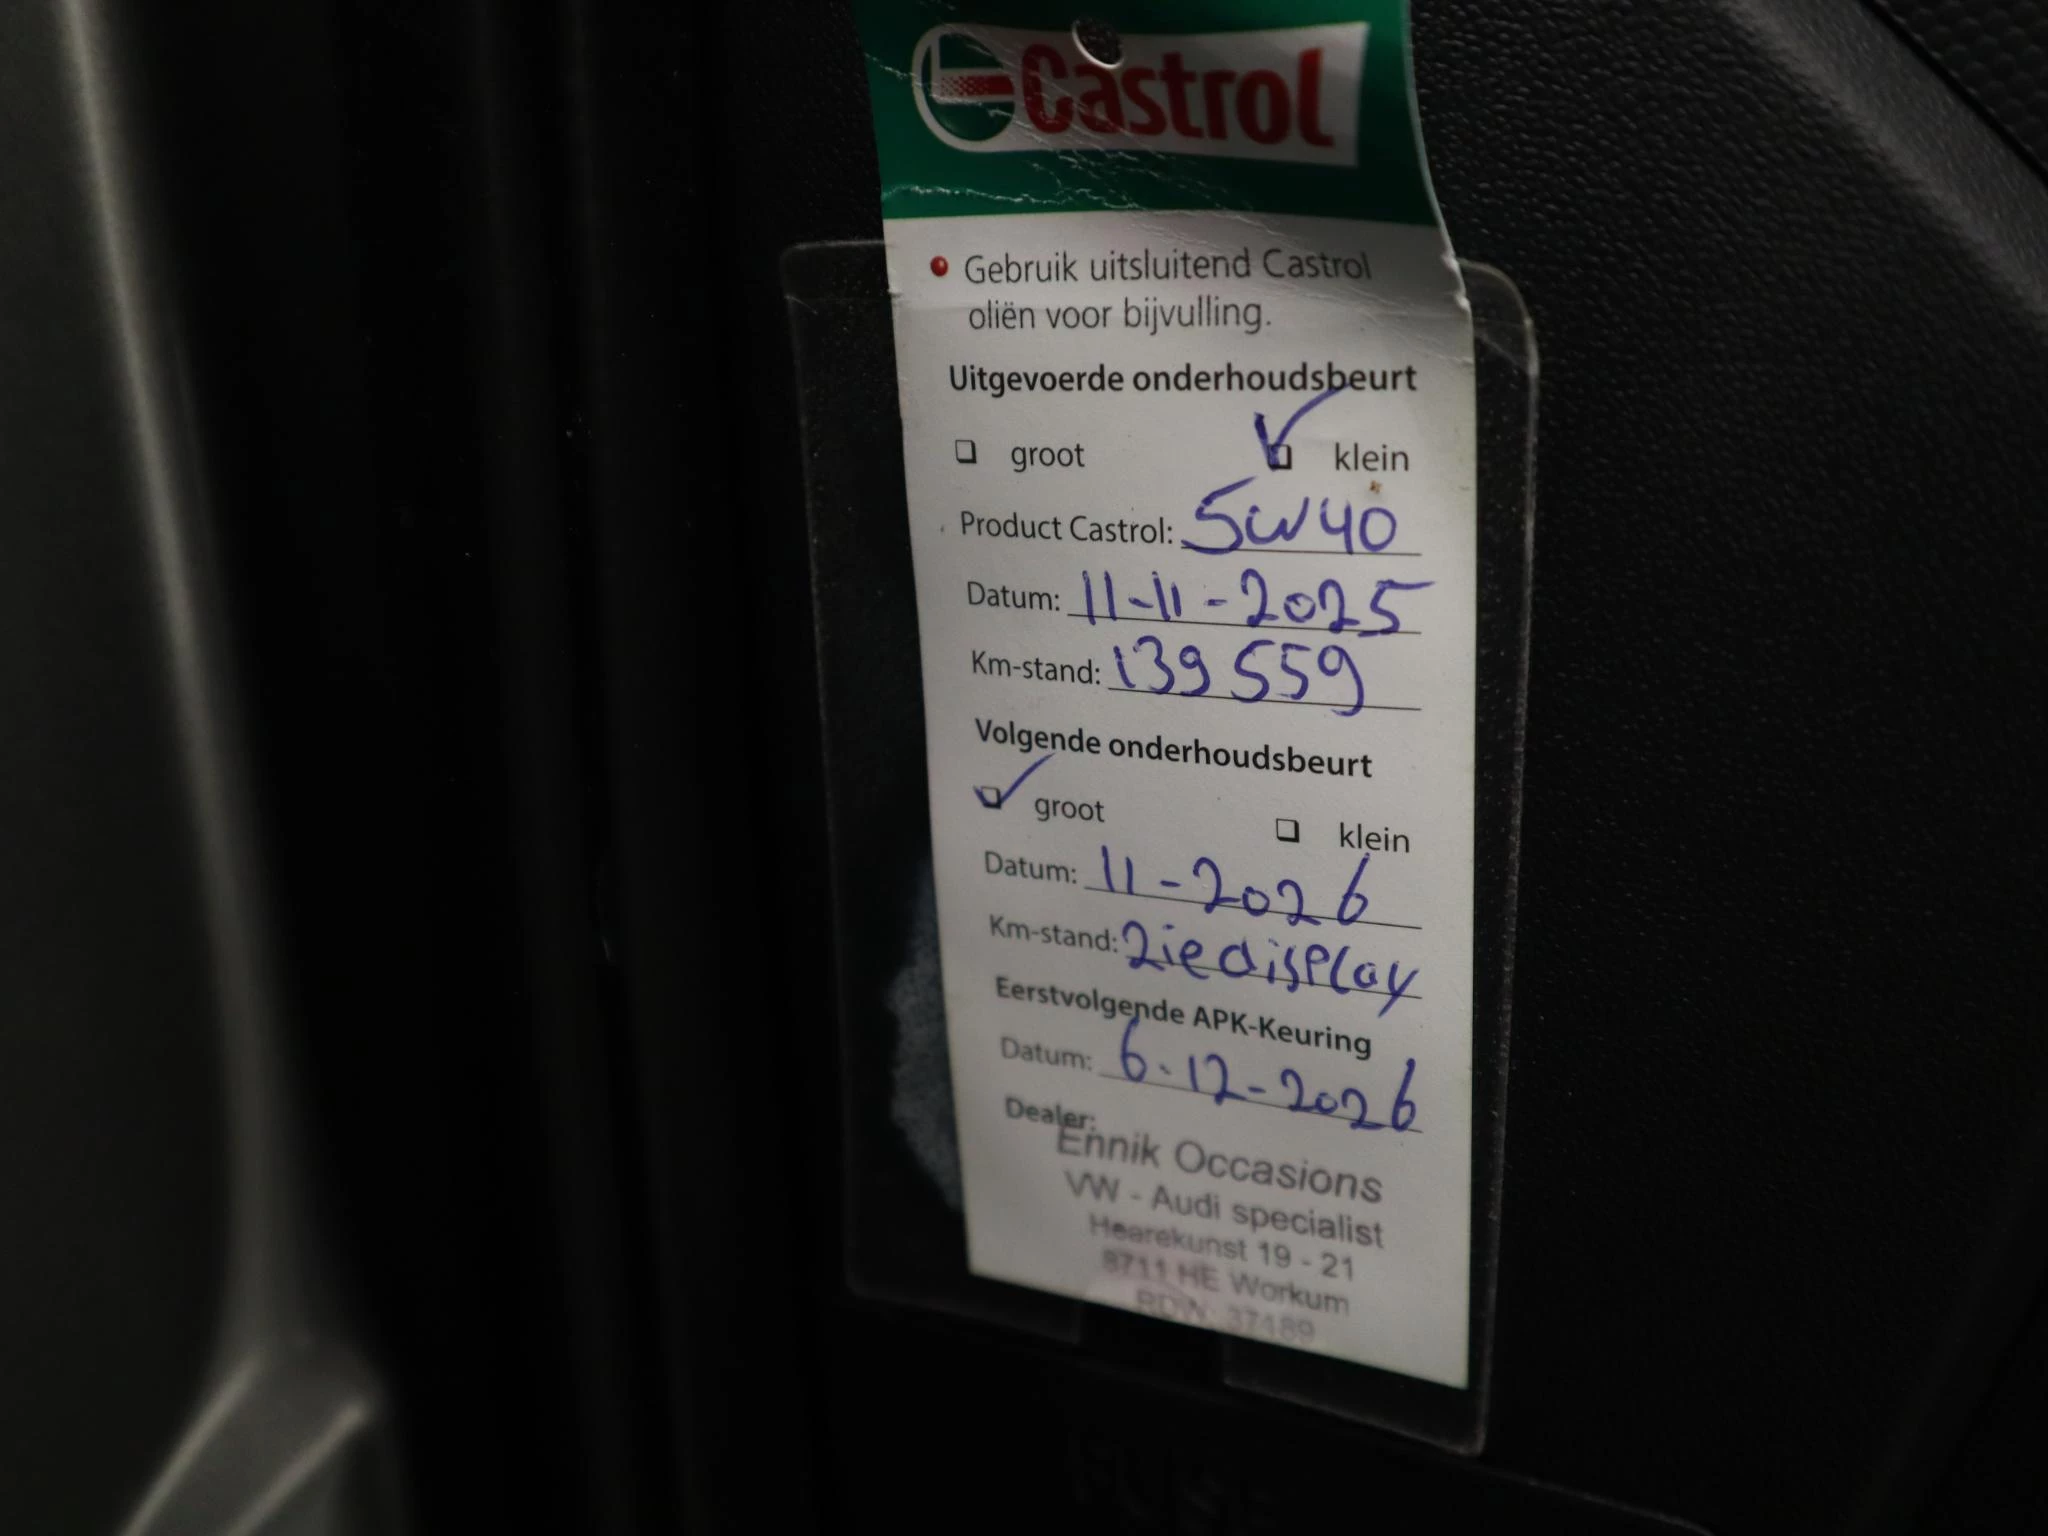 Castrol
Gebruik uitsluitend Castrol
oliën voor bijvulling.
Uitgevoerde onderhoudsbeurt
groot klein
Product Castrol: 5W40
Datum: 11-11-2025
Km-stand: 139559
Volgende onderhoudsbeurt
groot klein
Datum: 11-2026
Km-stand: Zie display
Eerstvolgende APK-Keuring
Datum: 6-12-2026
Dealer:
Ennik Occasions
VW - Audi specialist
Hearekunst 19 - 21
8711 HE Workum
RDW: 37189